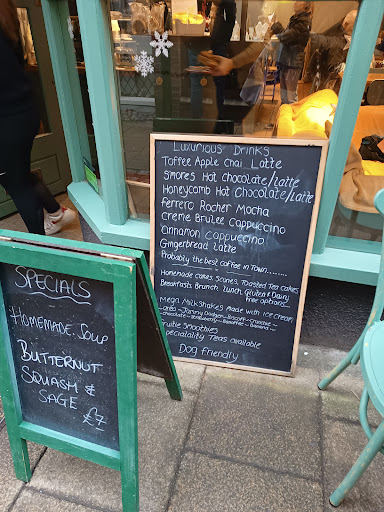 SPECIALS
HOMEMADE SOUP
BUTTERNUT
SQUASH &
SAGE £7
LUXURIOUS DRINKS
TOFFEE APPLE CHAI LATTE
SMORES HOT CHOCOLATE/LATTE
HONEYCOMB HOT CHOCOLATE/LATTE
FERRERO ROCHER MOCHA
CREME BRULEE CAPPUCCINO
CINNAMON CAPPUCCINO
GINGERBREAD LATTE
PROBABLY THE BEST COFFEE IN TOWN........
HOMEMADE CAKES, SCONES, TOASTED TEA CAKES
BREAKFASTS, BRUNCH, LUNCH, GLUTEN & DAIRY
FREE OPTIONS
MEGA MILKSHAKES MADE WITH ICE CREAM
CHOCOLATE STRAWBERRY BANOFFEE BANANA
SMOOTHIES
SPECIALITY TEAS AVAILABLE
DOG FRIENDLY